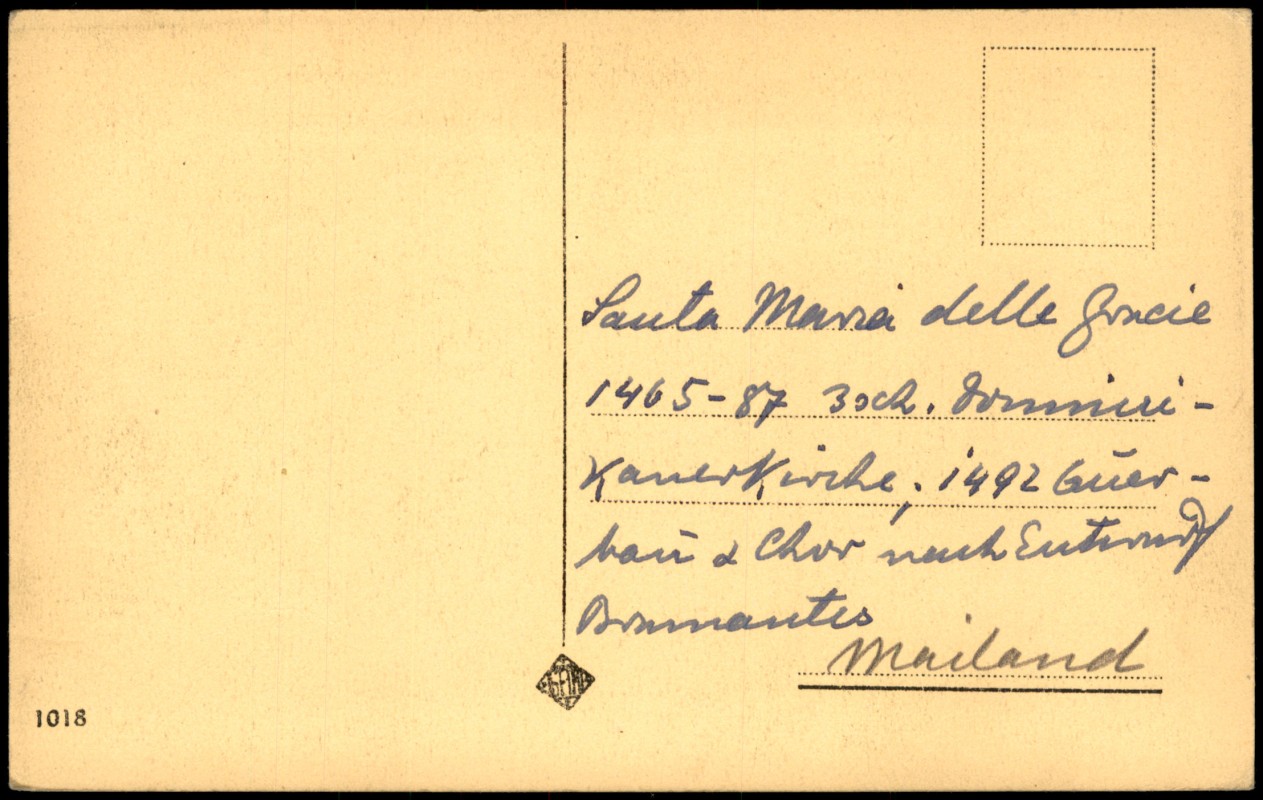 Santa Maria delle Gracie
1465-87 3sch. Domini-
kanerkirche; 1492 Quer-
bau & Chor nach Entwurf
Bramantes
Mailand
1018